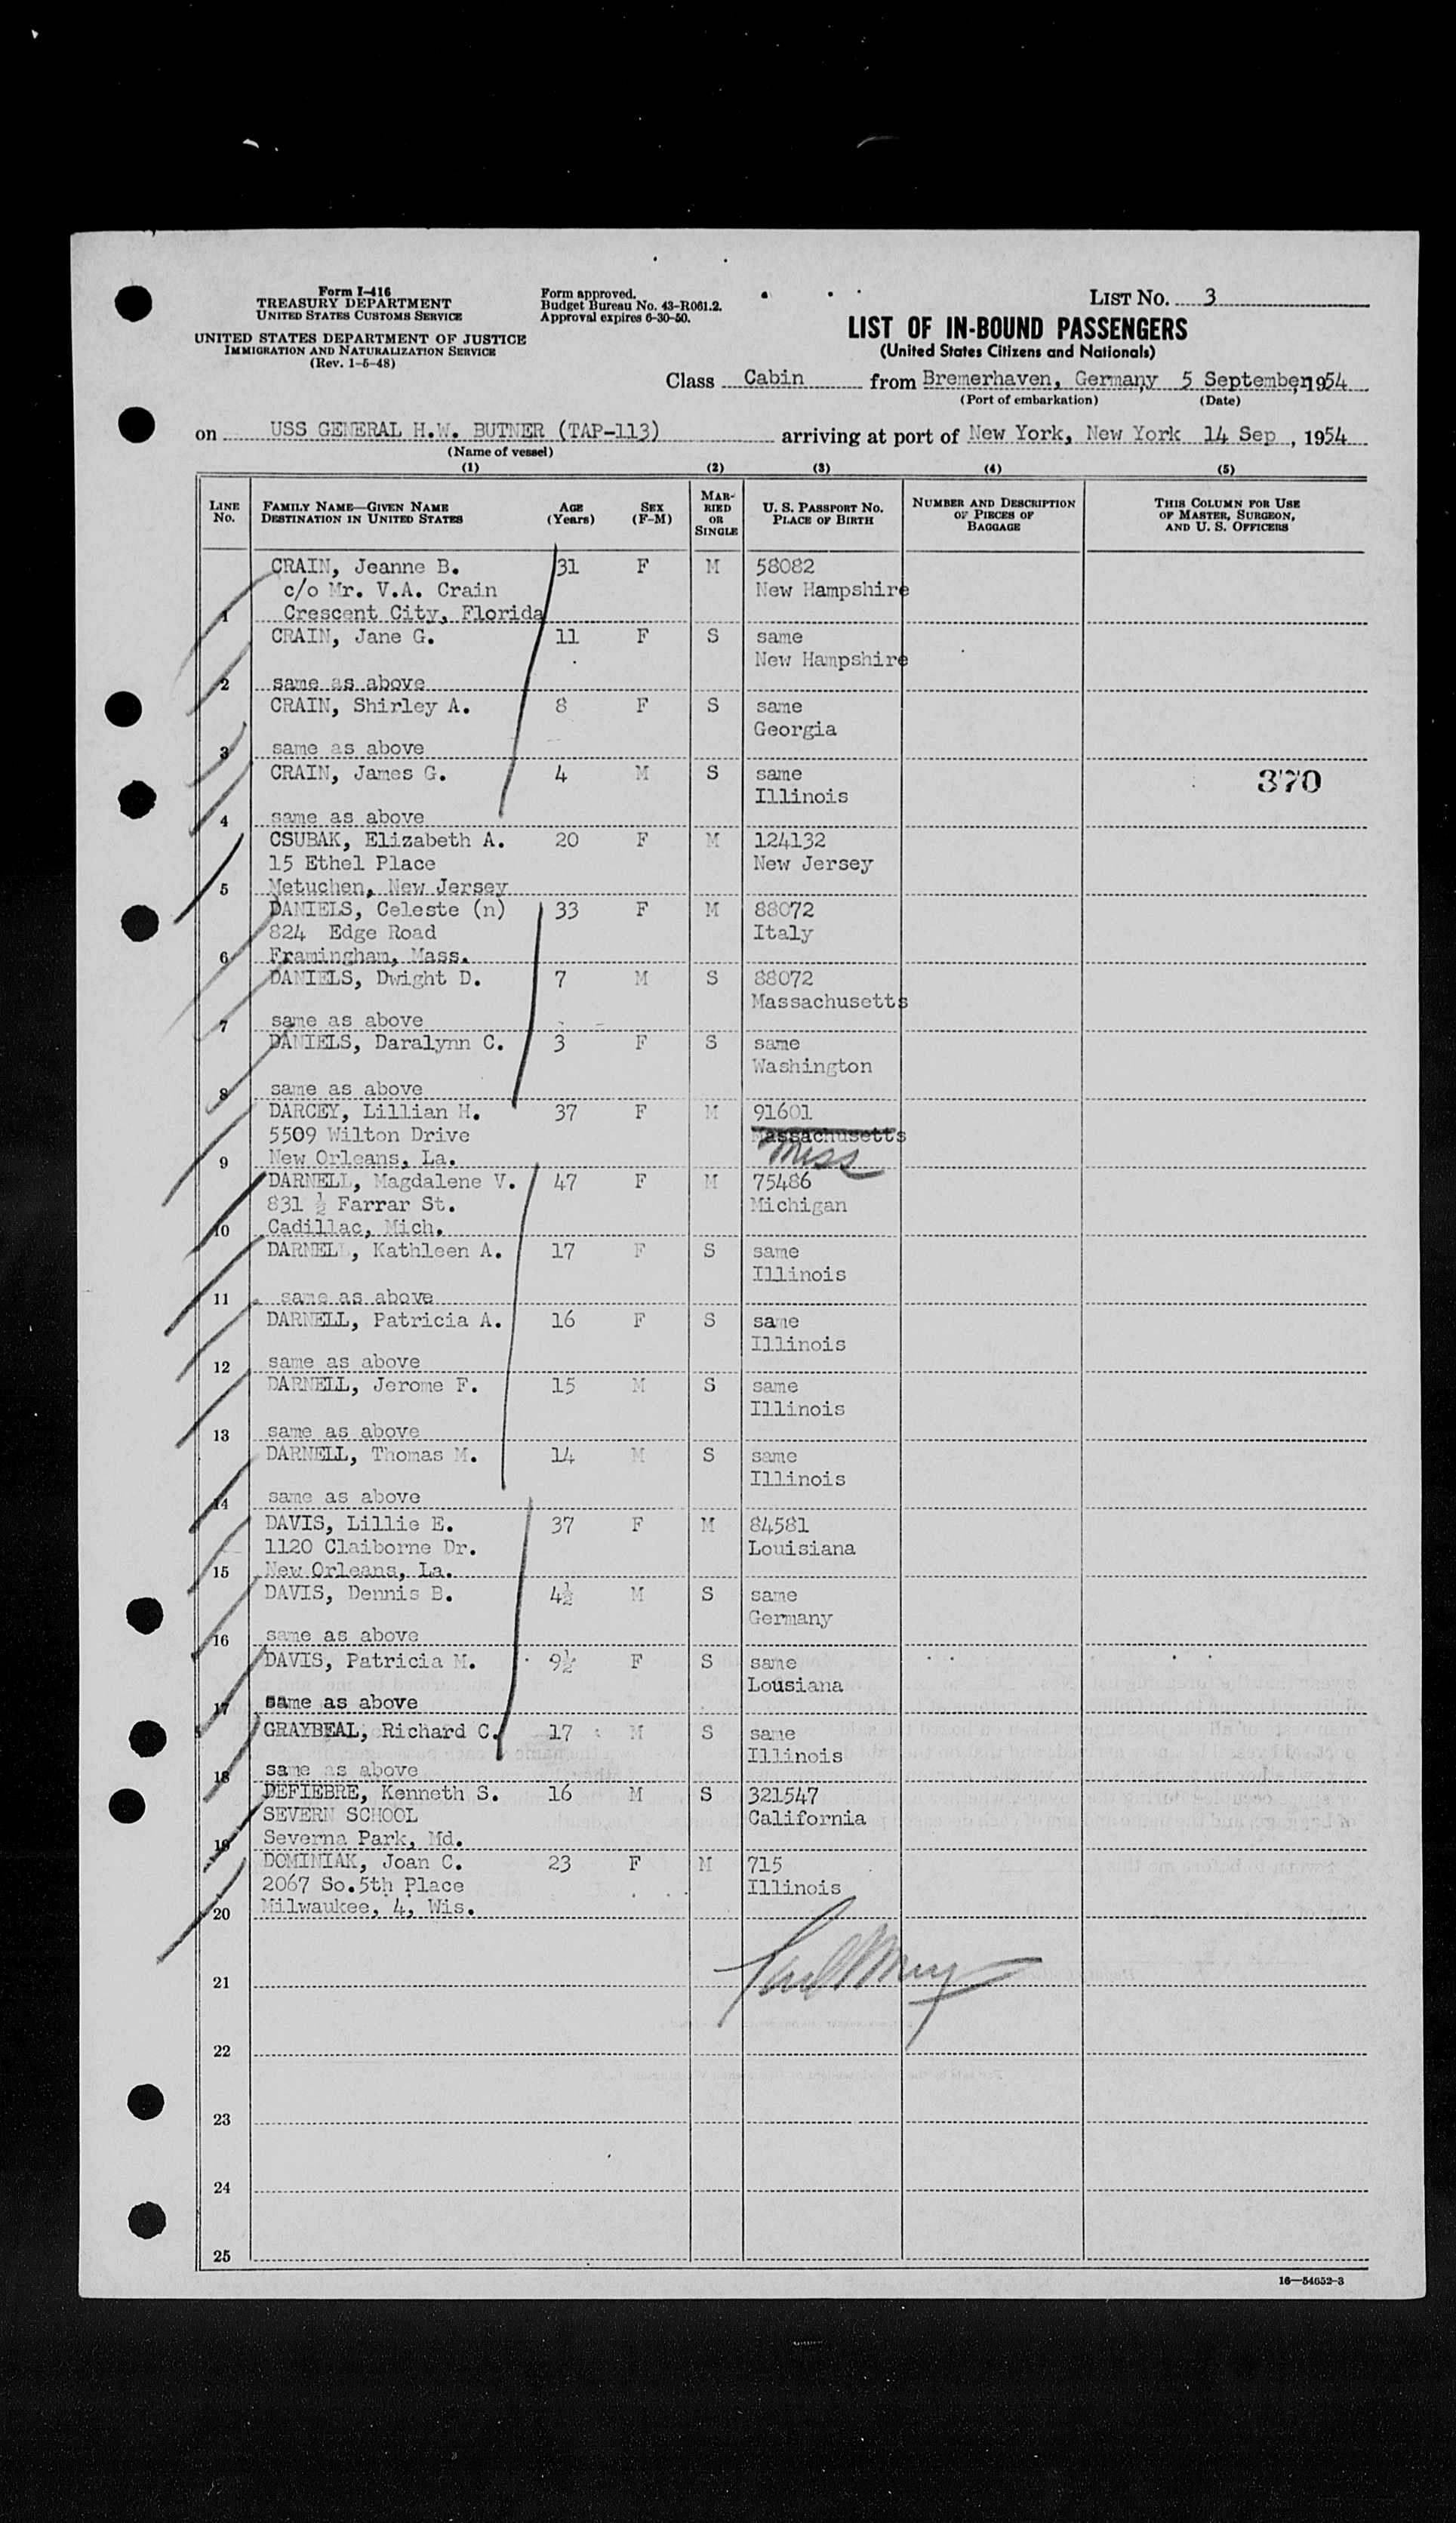 Form I-416
TREASURY DEPARTMENT
UNITED STATES CUSTOMS SERVICE
UNITED STATES DEPARTMENT OF JUSTICE
IMMIGRATION AND NATURALIZATION SERVICE
(Rev. 1-5-48)
Form approved.
Budget Bureau No. 43-R061.2.
Approval expires 6-30-50.
LIST No. 3
LIST OF IN-BOUND PASSENGERS
(United States Citizens and Nationals)
Class Cabin from Bremerhaven, Germany 5 September, 1954
(Port of embarkation) (Date)
on USS GENERAL H.W. BUTNER (TAP-113) arriving at port of New York, New York 14 Sep, 1954
(Name of vessel)
(1) (2) (3) (4) (5)
LINE No. FAMILY NAME—GIVEN NAME DESTINATION IN UNITED STATES AGE (Years) SEX (F-M) MARRIED OR SINGLE U. S. PASSPORT No. PLACE OF BIRTH NUMBER AND DESCRIPTION OF PIECES OF BAGGAGE THIS COLUMN FOR USE OF MASTER, SURGEON, AND U. S. OFFICERS
CRAIN, Jeanne B. 31 F M 58082
c/o Mr. V.A. Crain New Hampshire
1 Crescent City, Florida
CRAIN, Jane G. 11 F S same
New Hampshire
2 same as above
CRAIN, Shirley A. 8 F S same
Georgia
3 same as above
CRAIN, James G. 4 M S same 370
Illinois
4 same as above
CSUBAK, Elizabeth A. 20 F M 124132
15 Ethel Place New Jersey
5 Metuchen, New Jersey
DANIELS, Celeste (n) 33 F M 88072
824 Edge Road Italy
6 Framingham, Mass.
DANIELS, Dwight D. 7 M S 88072
Massachusetts
7 same as above
DANIELS, Daralynn C. 3 F S same
Washington
8 same as above
DARCEY, Lillian H. 37 F M 91601
5509 Wilton Drive Massachusetts
9 New Orleans, La. Miss
DARNELL, Magdalene V. 47 F M 75486
831 ½ Farrar St. Michigan
10 Cadillac, Mich.
DARNELL, Kathleen A. 17 F S same
Illinois
11 same as above
DARNELL, Patricia A. 16 F S same
Illinois
12 same as above
DARNELL, Jerome F. 15 M S same
Illinois
13 same as above
DARNELL, Thomas M. 14 M S same
Illinois
14 same as above
DAVIS, Lillie E. 37 F M 84581
1120 Claiborne Dr. Louisiana
15 New Orleans, La.
DAVIS, Dennis B. 4½ M S same
Germany
16 same as above
DAVIS, Patricia M. 9½ F S same
Lousiana
17 same as above
GRAYBEAL, Richard C. 17 M S same
Illinois
18 same as above
DEFIEBRE, Kenneth S. 16 M S 321547
SEVERN SCHOOL California
19 Severna Park, Md.
DOMINIAK, Joan C. 23 F M 715
2067 So.5th Place Illinois
20 Milwaukee, 4, Wis.
21
22
23
24
25
16—54652-3